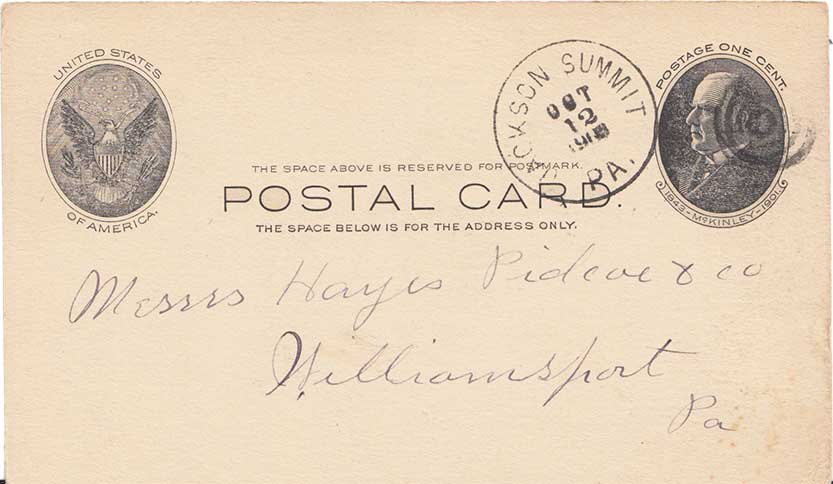 UNITED STATES
OF AMERICA.
JACKSON SUMMIT
OCT
12
PA.
POSTAGE ONE CENT.
1843-McKINLEY-1901
THE SPACE ABOVE IS RESERVED FOR POSTMARK.
POSTAL CARD.
THE SPACE BELOW IS FOR THE ADDRESS ONLY.
Messrs Hayes Pidcoe & co
Williamsport
Pa